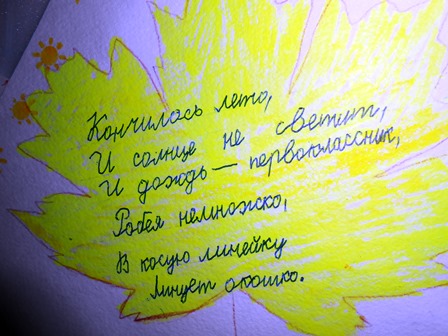 Кончилось лето,
И солнце не светит,
И дождь — первоклассник,
Робея немножко,
В косую линейку
Линует окошко.